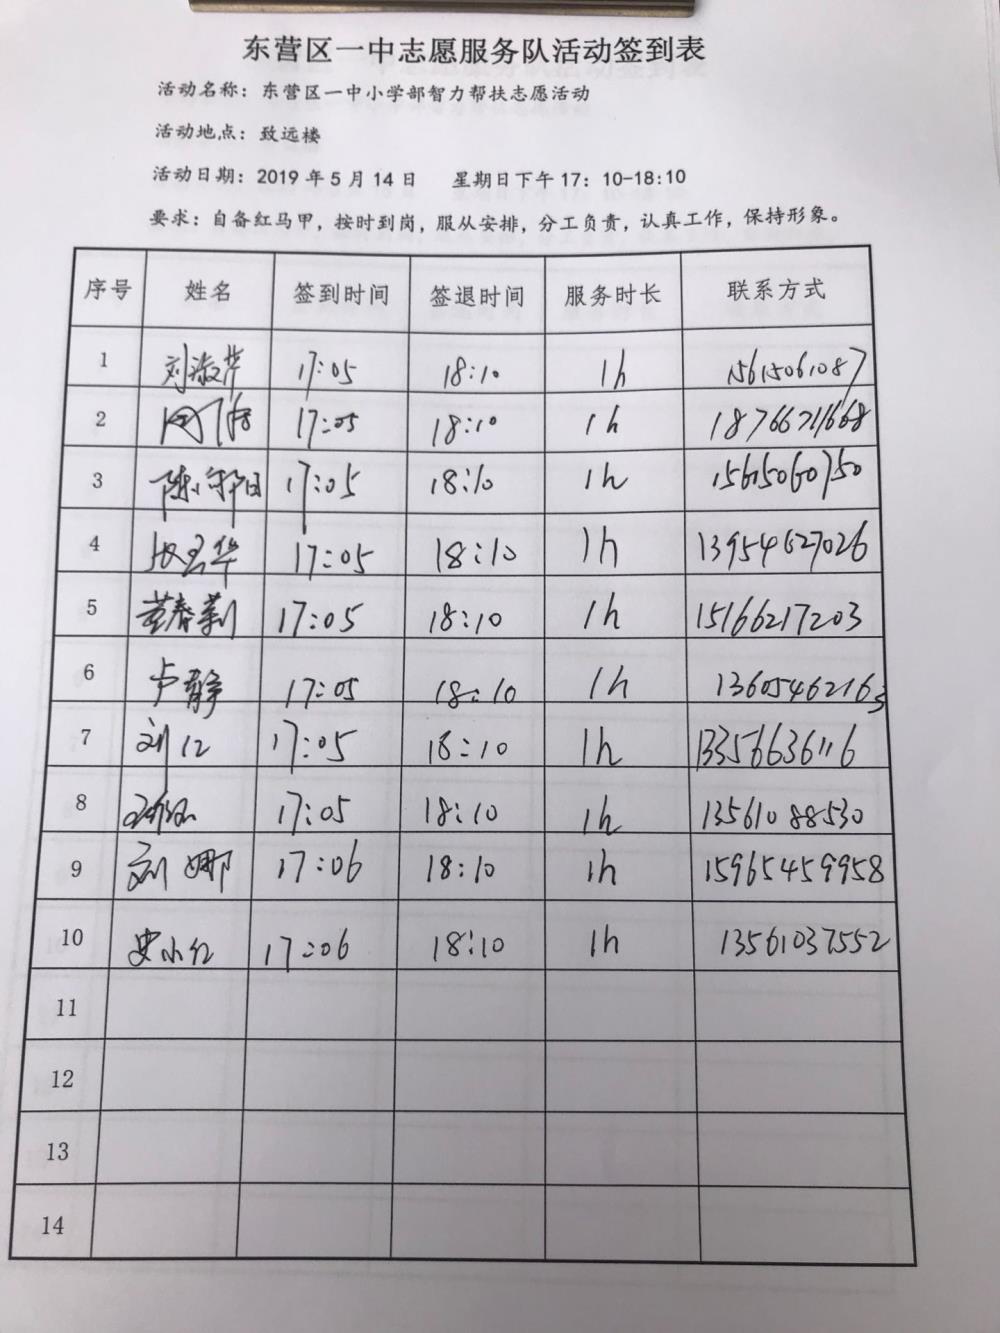 东营区一中志愿服务队活动签到表
活动名称：东营区一中小学部智力帮扶志愿活动
活动地点：致远楼
活动日期：2019年5月14日 星期日下午17：10-18:10
要求：自备红马甲，按时到岗，服从安排，分工负责，认真工作，保持形象。
序号 姓名 签到时间 签退时间 服务时长 联系方式
1 刘淑芹 17:05 18:10 1h 15615061087
2 17:05 18:10 1h 18766721668
3 17:05 18:10 1h 15615060750
4 17:05 18:10 1h 13954627026
5 董春莉 17:05 18:10 1h 15166217203
6 卢静 17:05 18:10 1h 13605462163
7 刘仁 17:05 18:10 1h 13356636116
8 17:05 18:10 1h 13561088530
9 刘娜 17:06 18:10 1h 15965459958
10 史小红 17:06 18:10 1h 13561037552
11
12
13
14